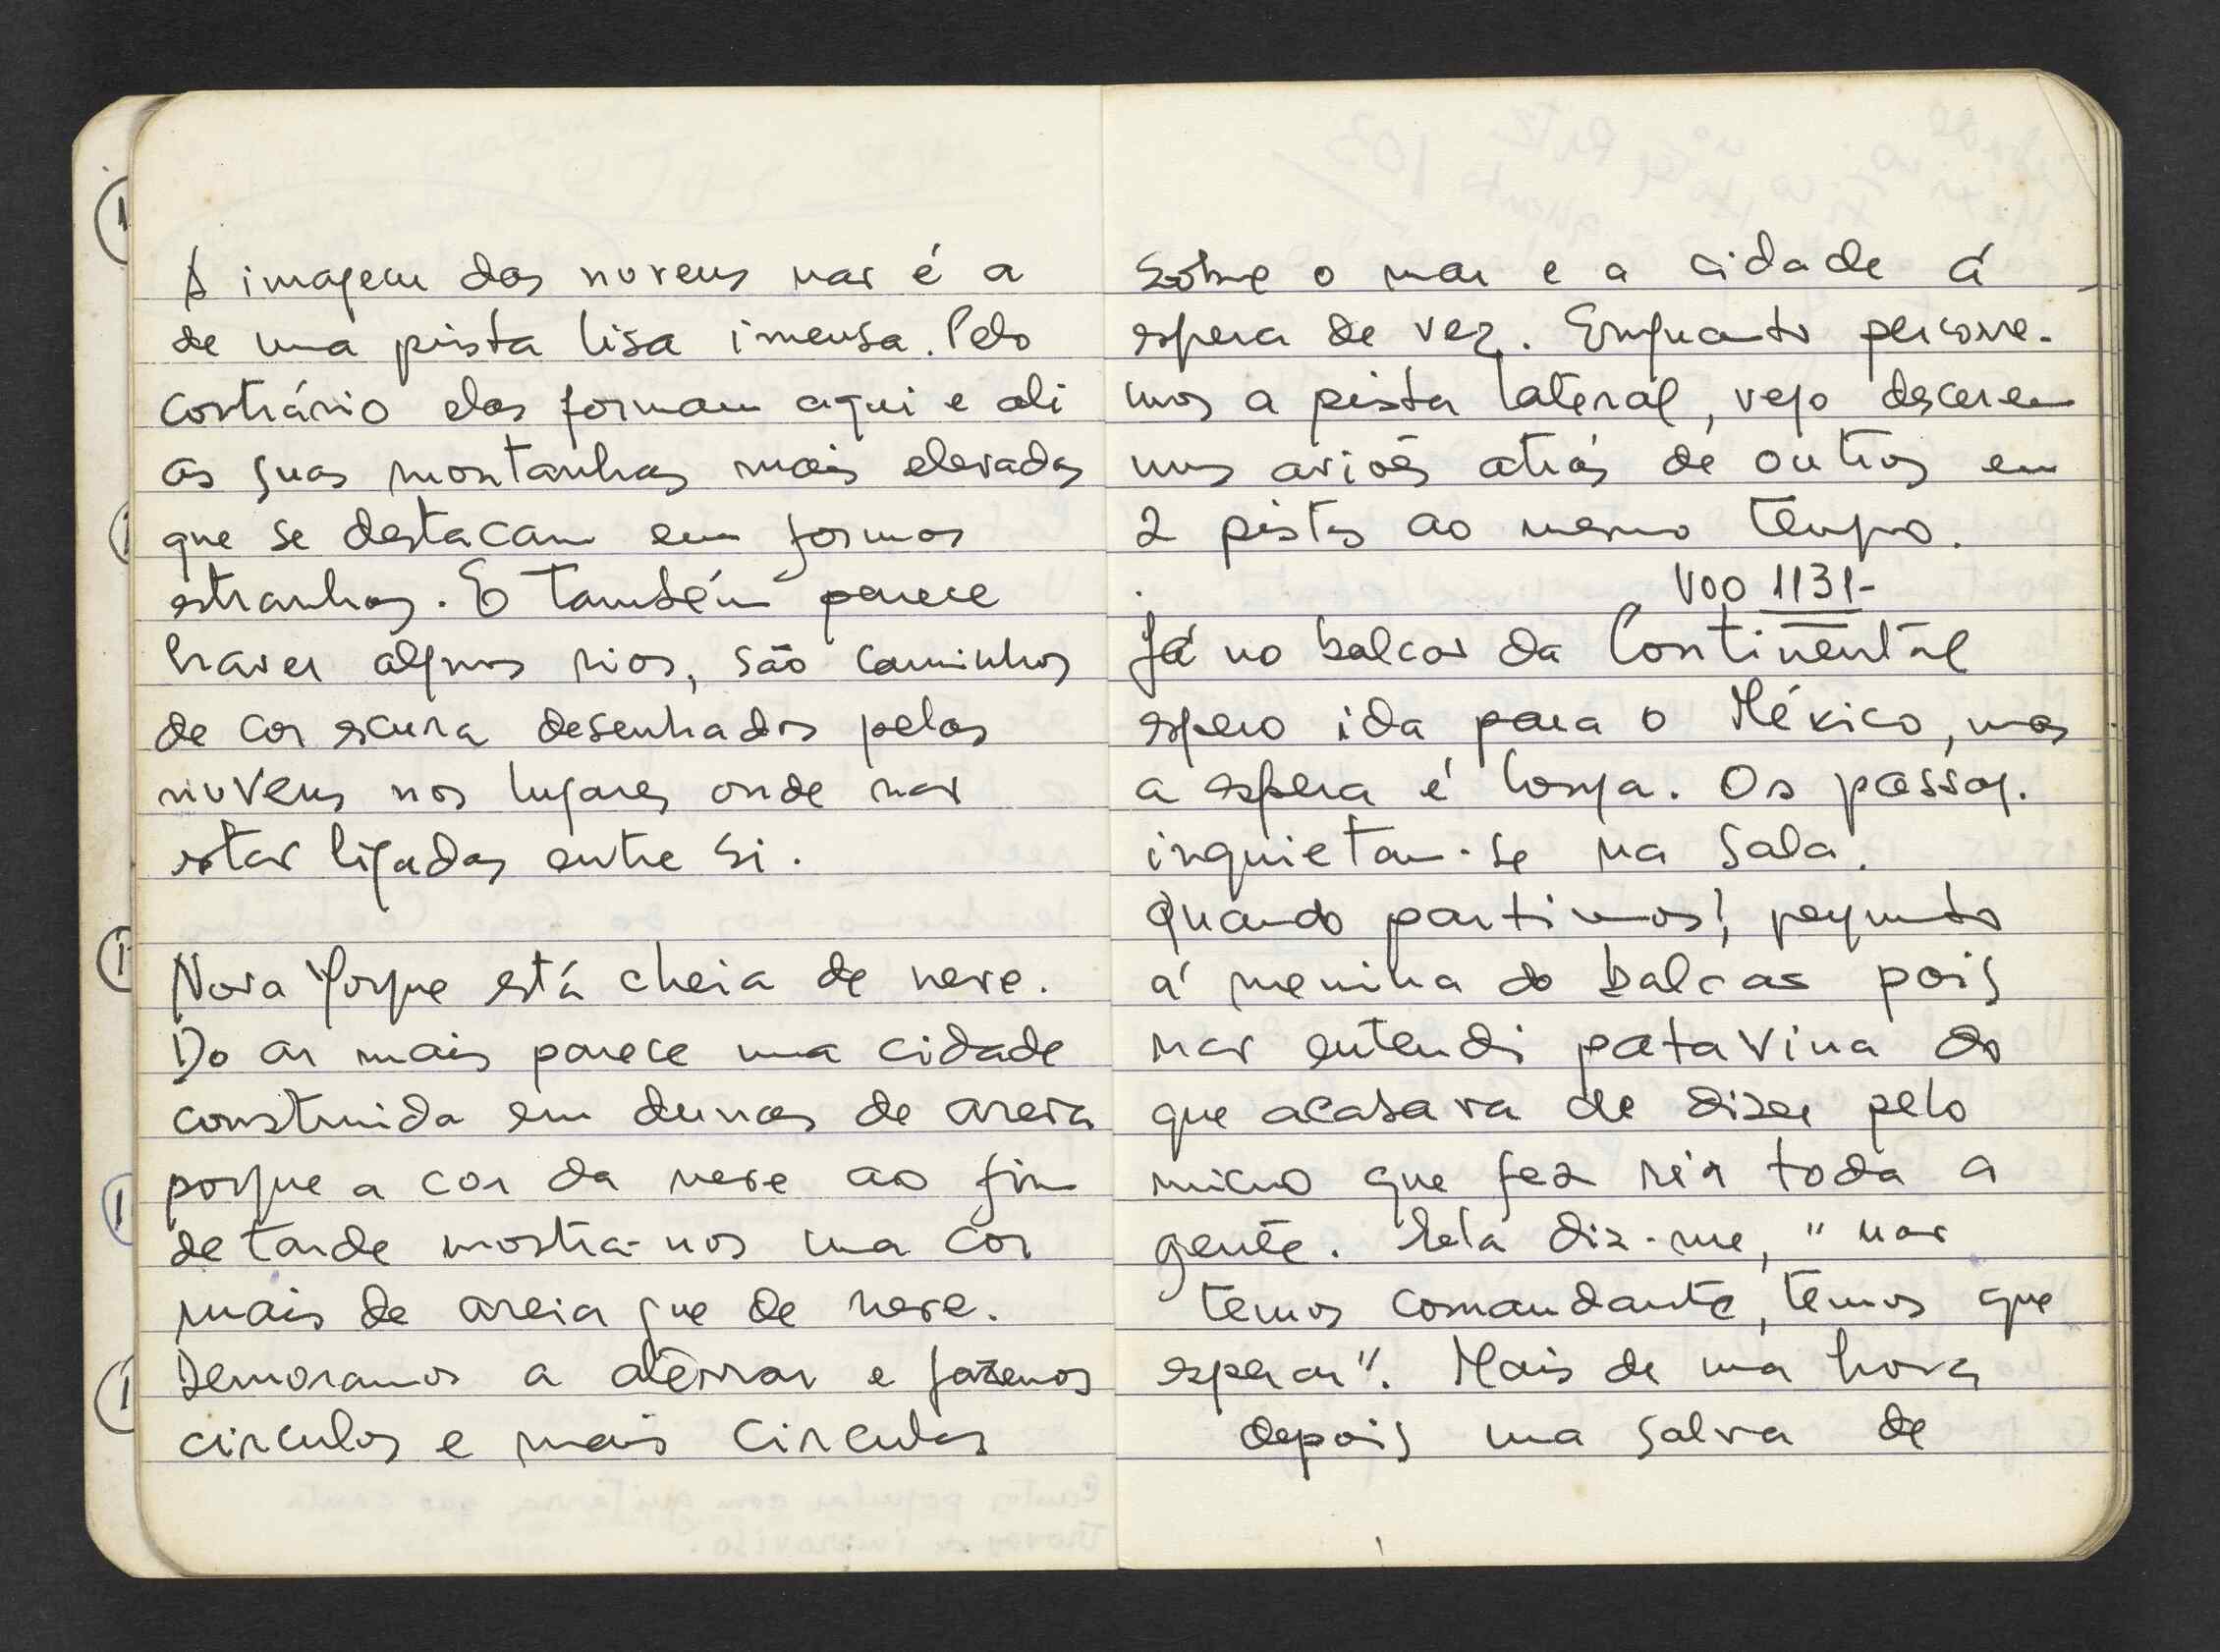 A imagem das nuvens não é a
de uma pista lisa imensa. Pelo
contrário elas formam aqui e ali
as suas montanhas mais elevadas
que se destacam em formas
estranhas. E também parece
haver alguns rios, são caminhos
de cor escura desenhados pelas
nuvens nos lugares onde não
estão ligadas entre si.
Nova Yorque está cheia de neve.
Do ar mais parece uma cidade
construida em dunas de areia
porque a cor da neve ao fim
de tarde mostra-nos uma cor
mais de areia que de neve.
Demoramos a aterrar e fazemos
circulos e mais circulos
sobre o mar e a cidade á
espera de vez. Enquanto percorre-
mos a pista lateral, vejo descerem
uns aviões atrás de outros em
2 pistas ao mesmo tempo.
VOO 1131-
Já no balcão da Continental
espero ida para o México, mas
a espera é longa. Os passag.
inquietam-se na sala.
Quando partimos?, pergunto
á menina do balcão pois
não entendi patavina do
que acabava de dizer pelo
micro que fez rir toda a
gente. Ela diz-me, "não
temos comandante, temos que
esperar". Mais de uma hora
depois uma salva de